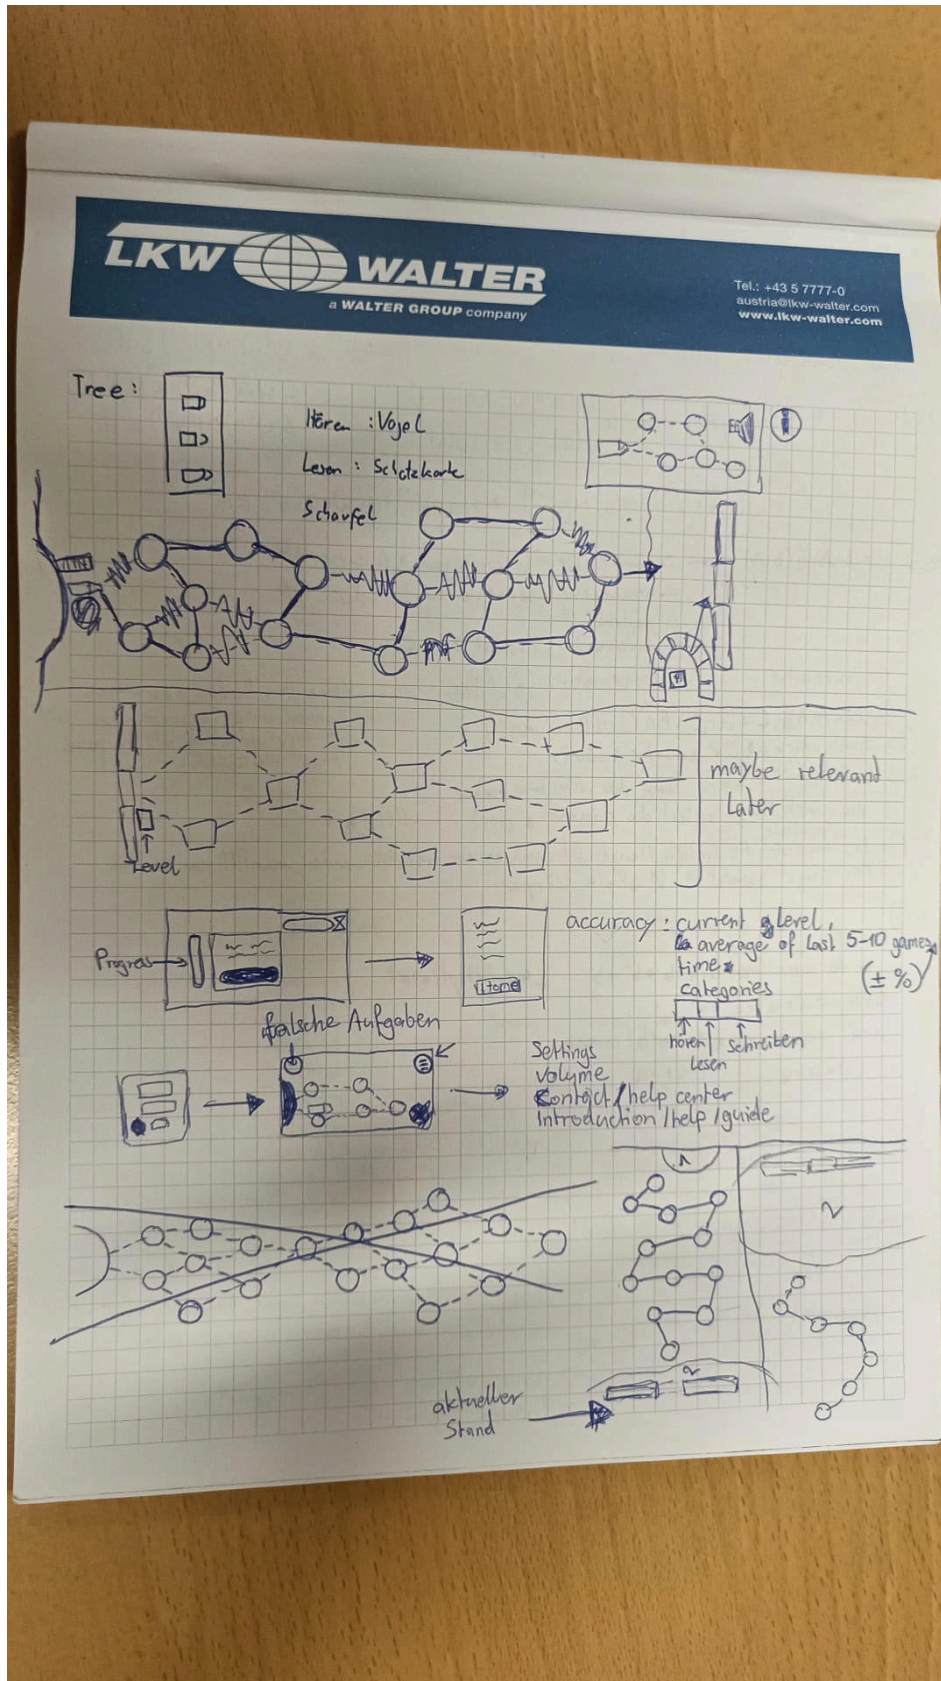 LKW WALTER
a WALTER GROUP company
Tel.: +43 5 7777-0
austria@lkw-walter.com
www.lkw-walter.com
Tree:
Hören : Vogel
Lesen : Schatzkarte
Schaufel
maybe relevand
Later
Level
Progress
Home
accuracy : current level,
average of last 5-10 games
time
(± %)
categories
hören
lesen
schreiben
falsche Aufgaben
Settings
volume
Contact/help center
Introduction/help/guide
1
2
2
aktueller
Stand